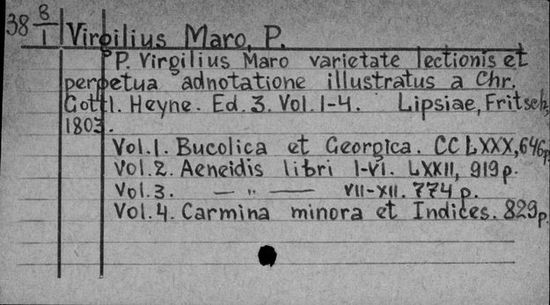 38 8/1 Virgilius Maro, P.
P. Virgilius Maro varietate lectionis et
perpetua adnotatione illustratus a Chr.
Gottl. Heyne. Ed. 3. Vol. 1-4. Lipsiae, Fritsch,
1803.
Vol. 1. Bucolica et Georgica. CCLXXX, 646p.
Vol. 2. Aeneidis libri I-VI. LXXII, 919p.
Vol. 3. — " — VII-XII. 774 p.
Vol. 4. Carmina minora et Indices. 829p.